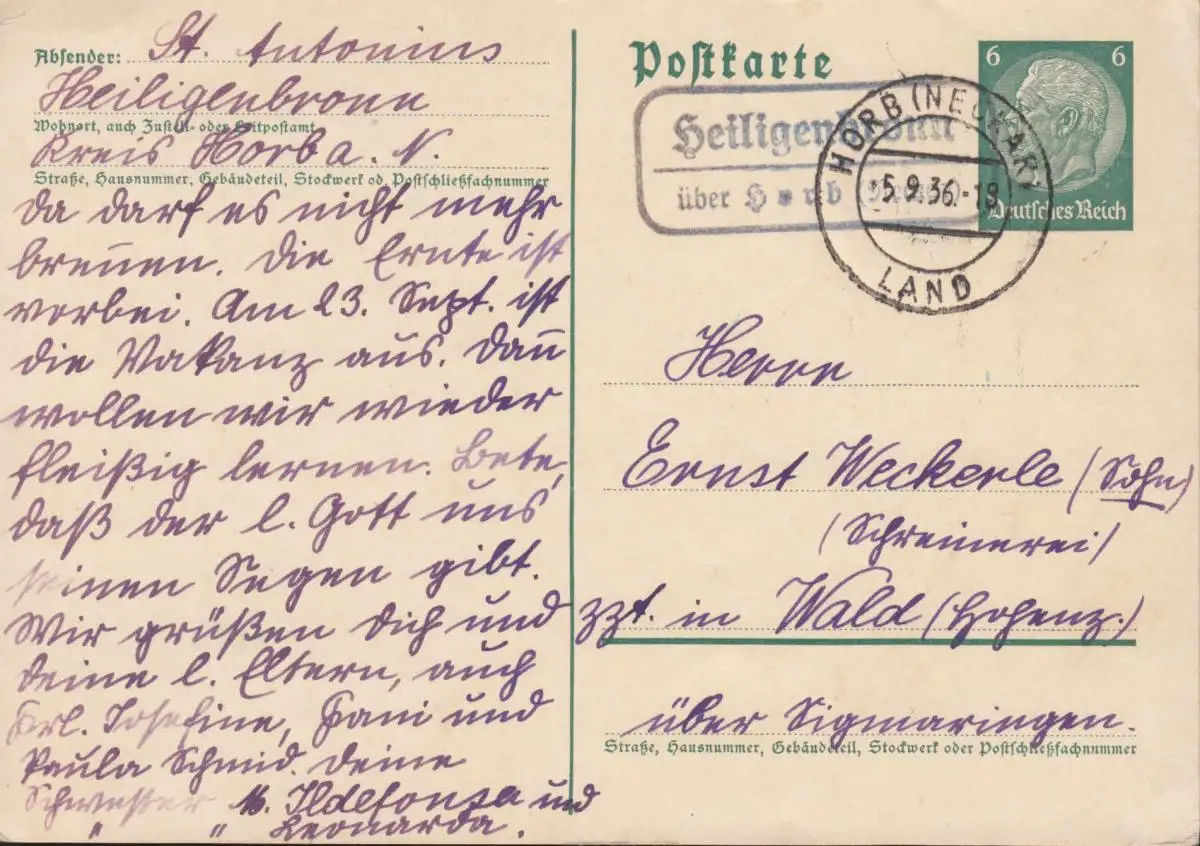 Absender: St. Antonius
Heiligenbronn
Wohnort, auch Zustell- oder Leitpostamt
Kreis Horb a. N.
Straße, Hausnummer, Gebäudeteil, Stockwerk od. Postschließfachnummer
da darf es nicht mehr
breñen. Die Ernte ist
vorbei. Am 23. Sept. ist
die Vakanz aus. Dañ
wollen wir wieder
fleißig lernen. Bete,
daß der l. Gott uns
seinen Segen gibt.
Wir grüßen Dich und
Deine l. Eltern, auch
Frl. Josefine, Fani und
Paula Schmid. Deine
Schwester M. Ildefonsa und
" " Leonarda.
Postkarte
6 6
Deutsches Reich
Heiligenbronn
über Horb (Neckar)
HORB (NECKAR)
-5.9.36.-18
LAND
Herrn
Ernst Weckerle (Sohn)
(Schreinerei)
zzt. in Wald (Hohenz.)
über Sigmaringen.
Straße, Hausnummer, Gebäudeteil, Stockwerk oder Postschließfachnummer